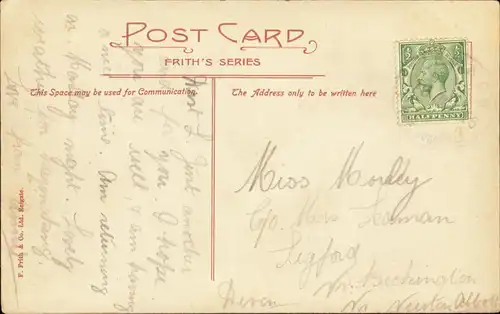 POST CARD
FRITH'S SERIES
This Space may be used for Communication.
The Address only to be written here
HALFPENNY
Just another
for you. I hope
you are well, I am having
a nice time. Am returning
on Monday night. Lovely
weather for
from
Miss Morley
c/o Miss Leaman
Sigford
Nr. Bickington
Nr. Newton Abbot
Devon
F. Frith & Co. Ltd. Reigate.